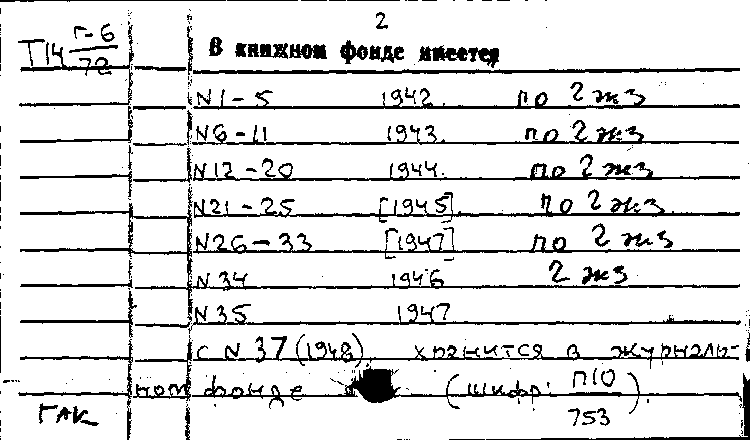 2
Т14 Г-6/72
В книжном фонде имеется
N1-5 1942. по 2 экз
N6-11 1943. по 2 экз
N12-20 1944. по 2 экз
N21-25 [1945] по 2 экз
N26-33 [1947] по 2 экз
N34 1946 2 экз
N35 1947
с N 37 (1948) хранится в журналь-
ном фонде (шифр: П10/753).
ГАК